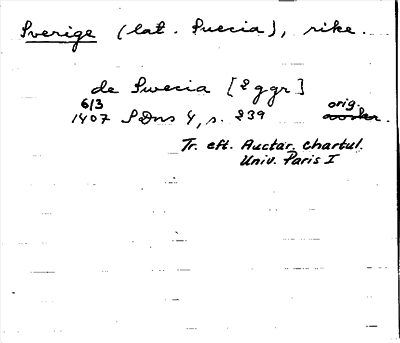 Sverige (lat. Suecia), rike.
de Swecia [2 ggr]
6/3
1407 SDns 4, s. 239 orig.
Tr. eft. Auctar. chartul.
Univ. Paris I